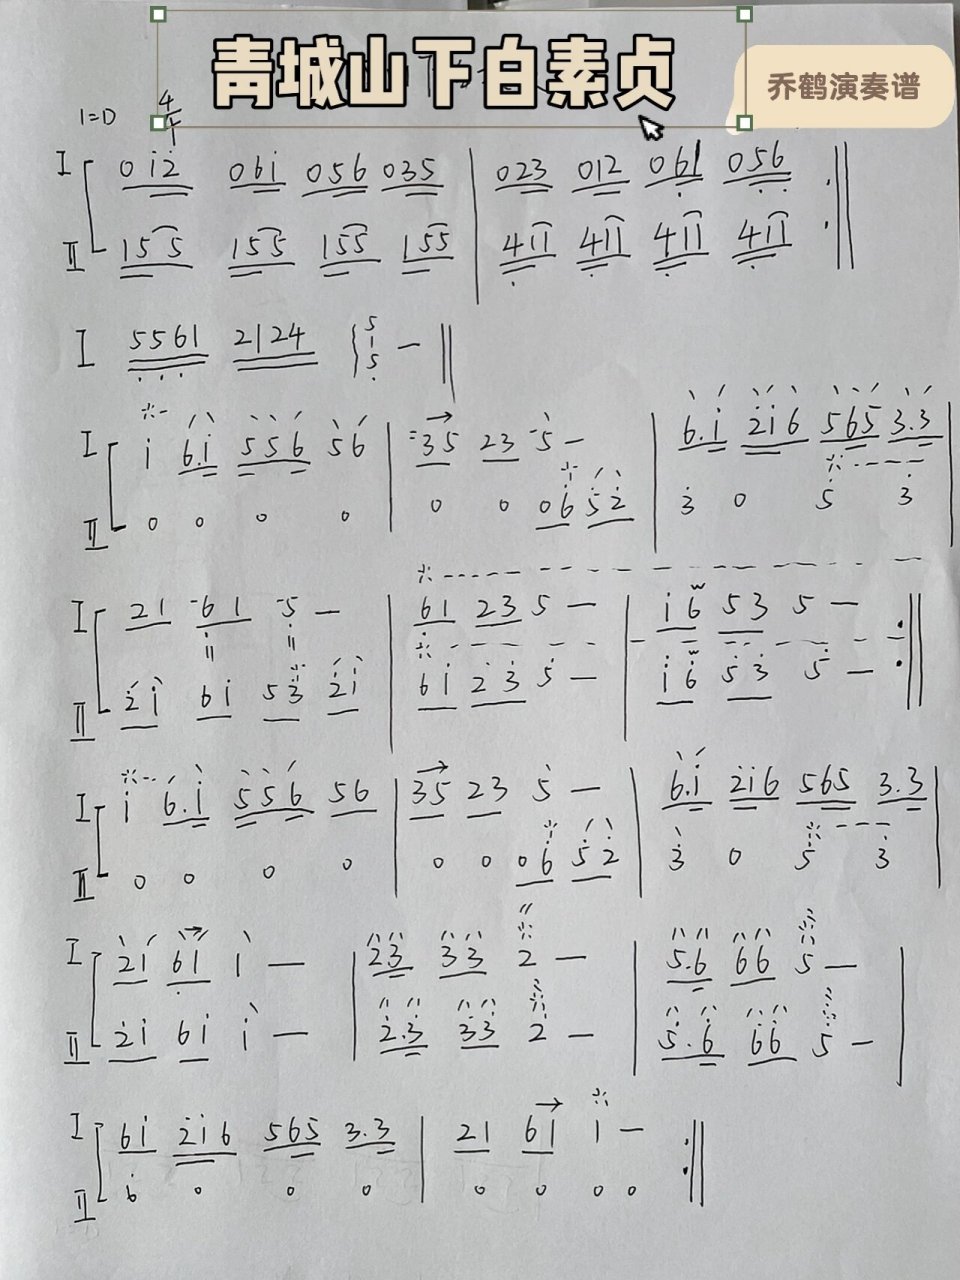 青城山下白素贞
乔鹤演奏谱
1=D 4/4
I 0 i̇ 2̇ 0 6 i̇ 0 5 6 0 3 5 | 0 2 3 0 1 2 0 6̣ 1 0 5̣ 6̣ :‖
II 1 5 5 1 5 5 1 5 5 1 5 5 | 4̣ 1 1 4̣ 1 1 4̣ 1 1 4̣ 1 1
I 5̣ 5̣ 6̣ 1 2 1 2 4 5 1 5̣ — ‖
I i̇ 6. i̇ 5 5 6 5 6 | 3 5 2 3 5 — | 6. i̇ 2̇ i̇ 6 5 6 5 3. 3 |
II 0 0 0 0 | 0 0 0 6 5 2̇ | 3̇ 0 5̇ 3̇
I 2 1 6 1 5 — | 6 1 2 3 5 — | i̇ 6 5 3 5 — :‖
II 2̇ i̇ 6 i̇ 5 3̇ 2̇ i̇ | 6 i̇ 2̇ 3̇ 5̇ — | i̇ 6̇ 5̇ 3̇ 5̇ —
I i̇ 6. i̇ 5 5 6 5 6 | 3 5 2 3 5 — | 6. i̇ 2̇ i̇ 6 5 6 5 3. 3 |
II 0 0 0 0 | 0 0 0 6 5 2 | 3̇ 0 5̇ 3̇
I 2 1 6̣ 1 1 — | 2 3 3 3 2 — | 5. 6 6 6 5 — |
II 2̇ i̇ 6 i̇ i̇ — | 2̇. 3̇ 3̇ 3̇ 2̇ — | 5̇. 6̇ 6̇ 6̇ 5̇ —
I 6 i̇ 2̇ i̇ 6 5 6 5 3. 3 | 2 1 6 1 1 — :‖
II 0 0 0 | 0 0 0 0